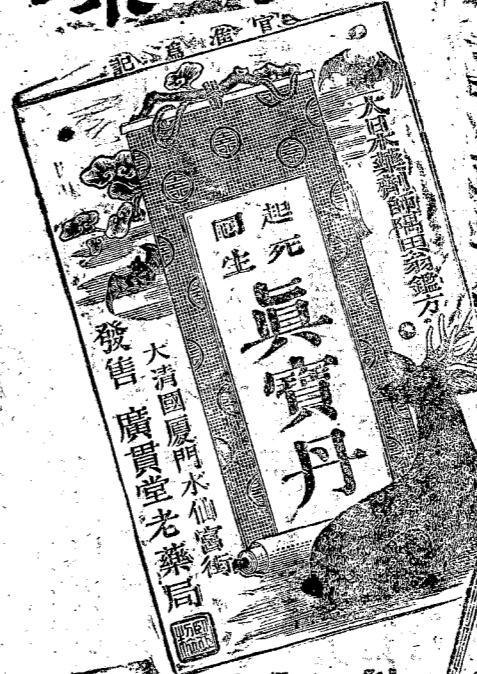 官准爲記
大日本藥劑師隅田翁鑑方
起死
囘生
眞寶丹
大清國厦門水仙宮街
發售 廣貫堂老藥局